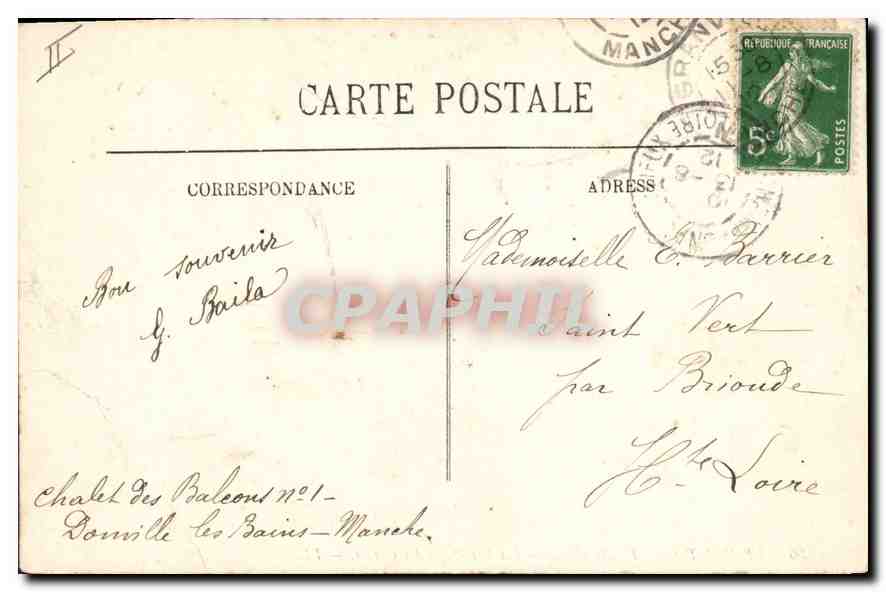 II
MANCH
GRANV
RÉPUBLIQUE FRANÇAISE
5c
POSTES
CARTE POSTALE
CORRESPONDANCE
ADRESSE
Bon souvenir
G. Baila
Mademoiselle E. Barrier
Saint Vert
par Brioude
Hte Loire
Chalet des Balcons no 1-
Donville les Bains-Manche.
CPARHIL